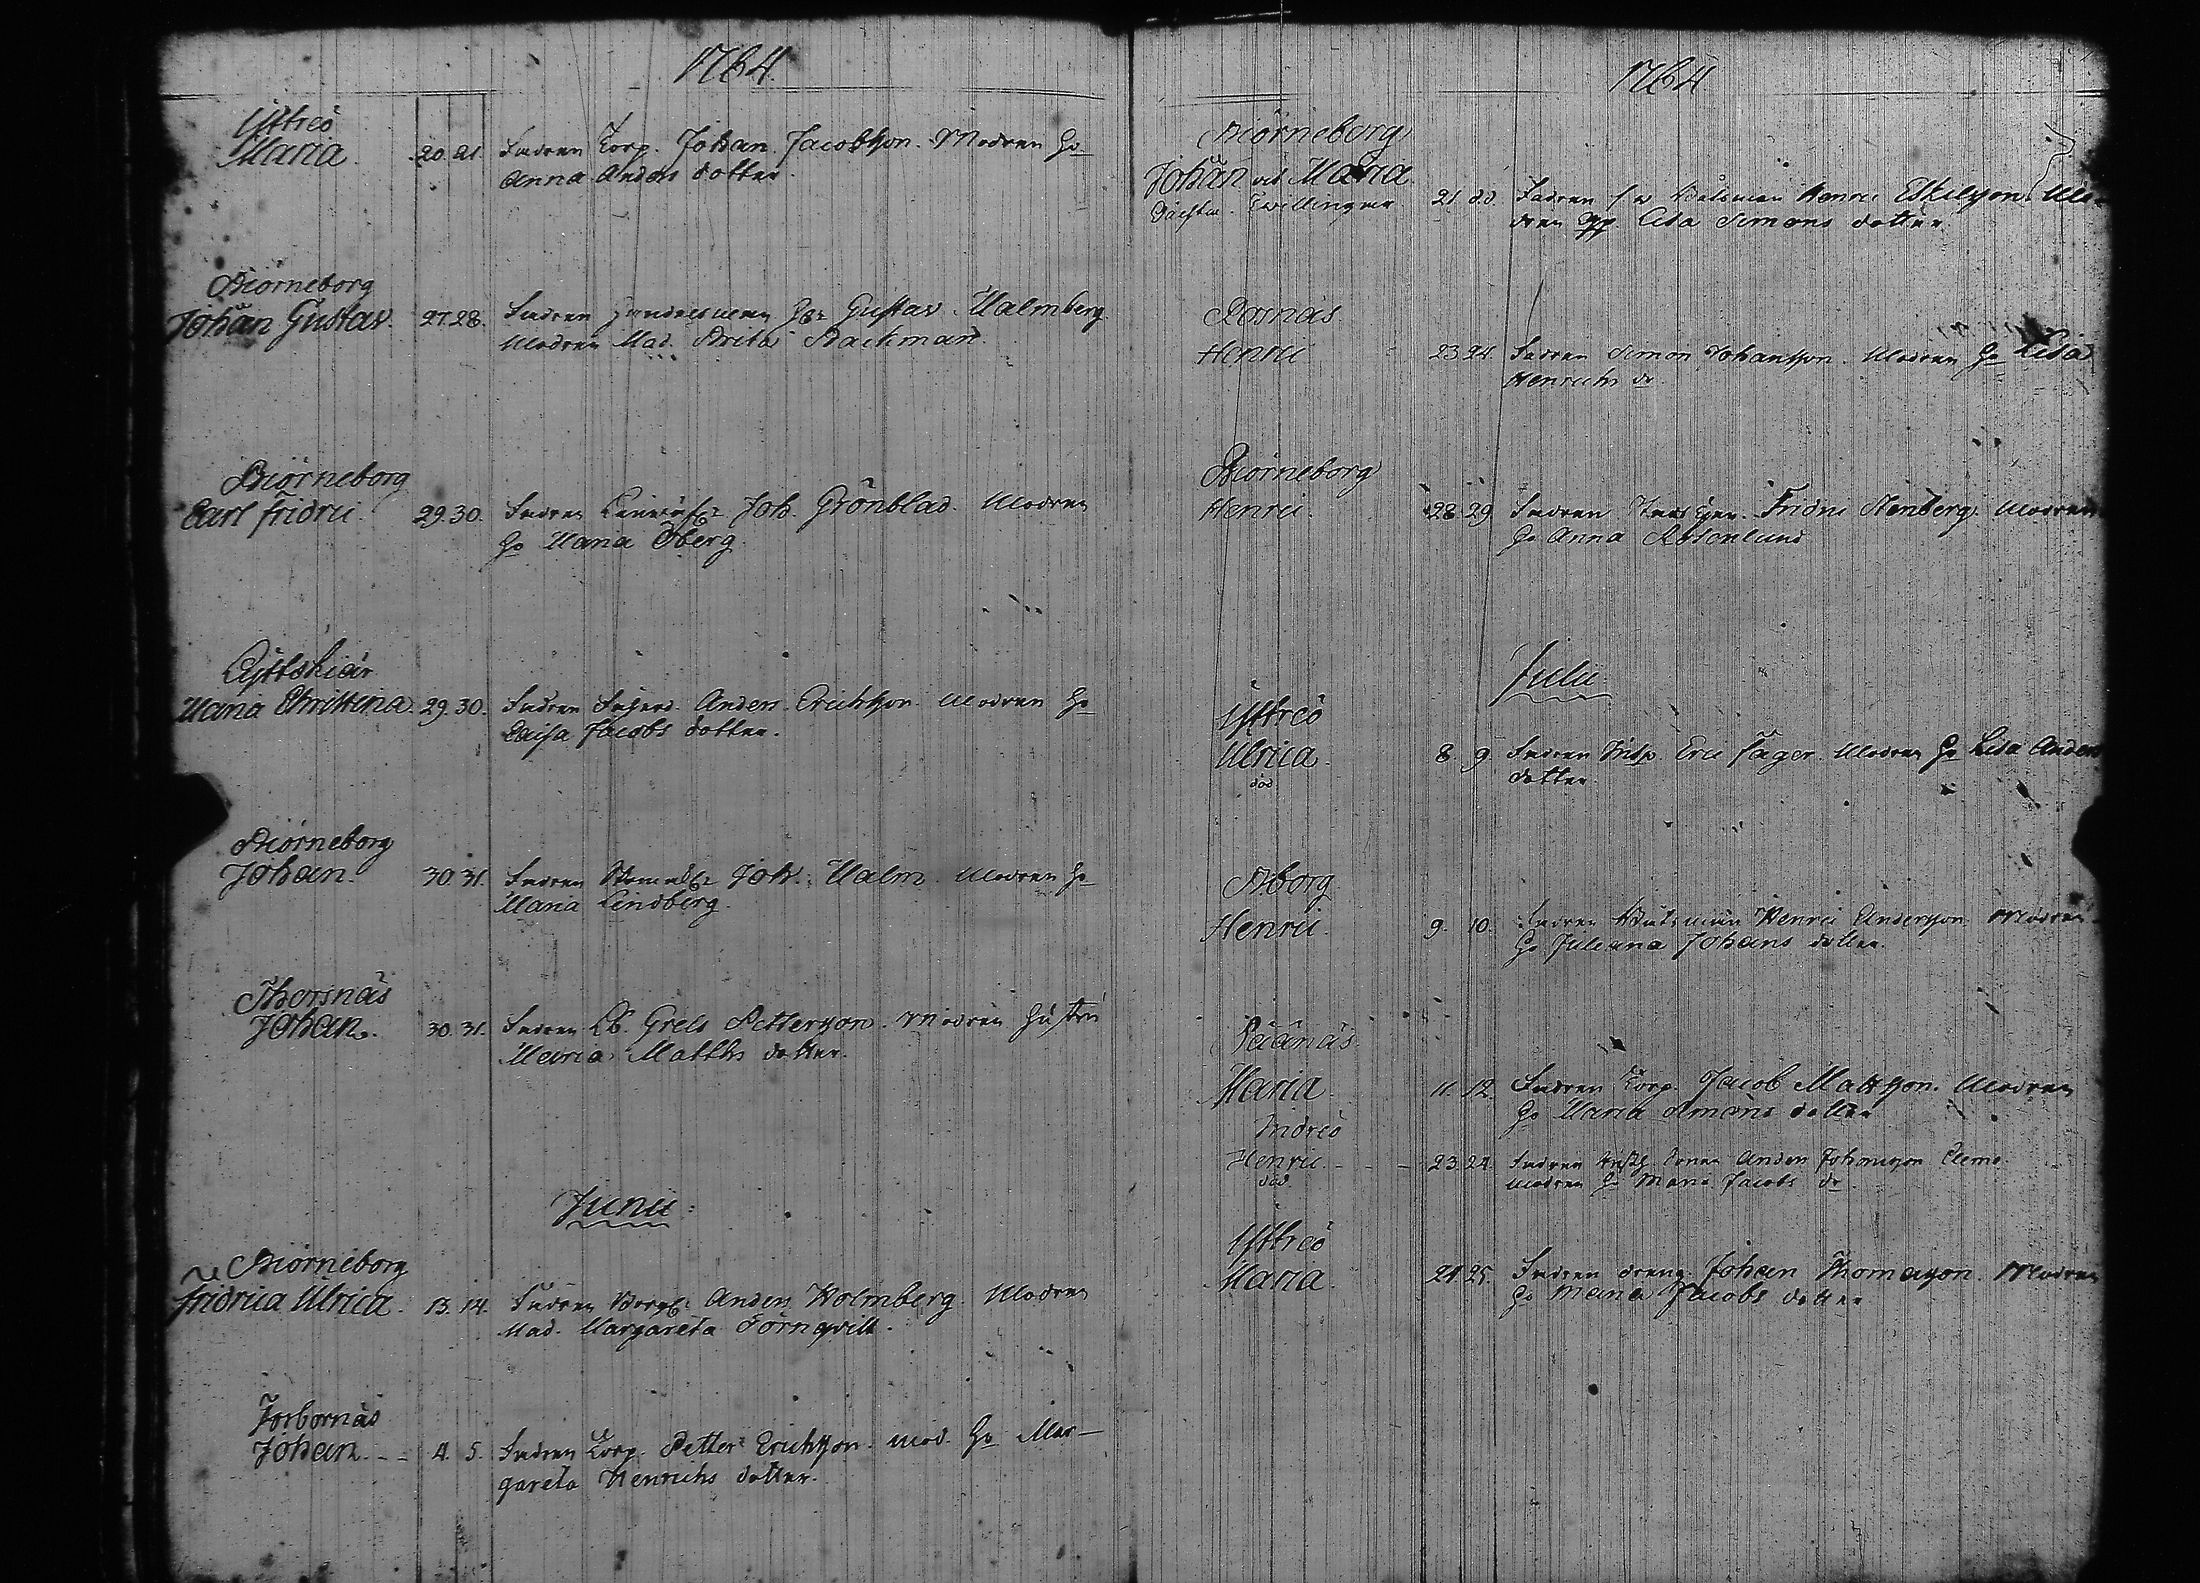 1764.
Yttreö
Maria. 20. 21. Fadren Torp. Johan Jacobsson. Modren Ho
Anna Anders dotter.
Biörneborg
Johan Gustav. 27. 28. Fadren Gustav Malmberg
Modren Mad. Brita Backman.
Biörneborg
Carl Fridric. 29. 30. Fadren Joh. Grönblad. Modren
Ho Maria Öberg.
Maria Christina. 29. 30. Fadren Anders Erichsson. Modren Ho
Caisa Jacobs dotter.
Biörneborg
Johan. 30. 31. Fadren Joh. Malm. Modren Ho
Maria Lindberg.
Thorsnäs
Johan. 30. 31. Fadren Grels Pettersson. Modren Hustru
Maria Matths dotter.
Junii.
Biörneborg
Fridrica Ulrica. 13. 14. Fadren Anders Holmberg. Modren
Mad. Margareta Törnqvist.
Torbornäs
Johan. 4. 5. Fadren Torp. Petter Erichsson. mod. Ho Mar-
gareta Henrichs dotter.
1764
Biörneborg
Johan och Maria
Twillingar 21. dd. Fadren Båtsman Henric Eskilsson. Mo-
dren Lisa Simons dotter.
Rosnäs
Henric 23. 24. Fadren Simon Johansson. Modren Ho Lisa
Henrichs dr.
Biörneborg
Henric. 28. 29. Fadren Fridric Stenberg. Modren
Ho Anna Rosenlund
Julii
Yttreö
Ulrica. 8. 9. Fadren Insp. Eric Fager. Modren Ho Lisa Anders
död dotter.
B.borg
Henric. 9. 10. Fadren Båtsman Henric Andersson. Modren
Ho Juliana Johans dotter.
Maria. 11. 12. Fadren Torp. Jacob Mattsson. Modren
Ho Maria Simons dotter
Indreö
Henric. 23. 24. Fadren Anders Johansson Clems
död Modren Ho Maria Jacobs dr
Yttreö
Maria. 24. 25. Fadren dreng Johan Thomasson. Modren
Ho Maria Jacobs dotter